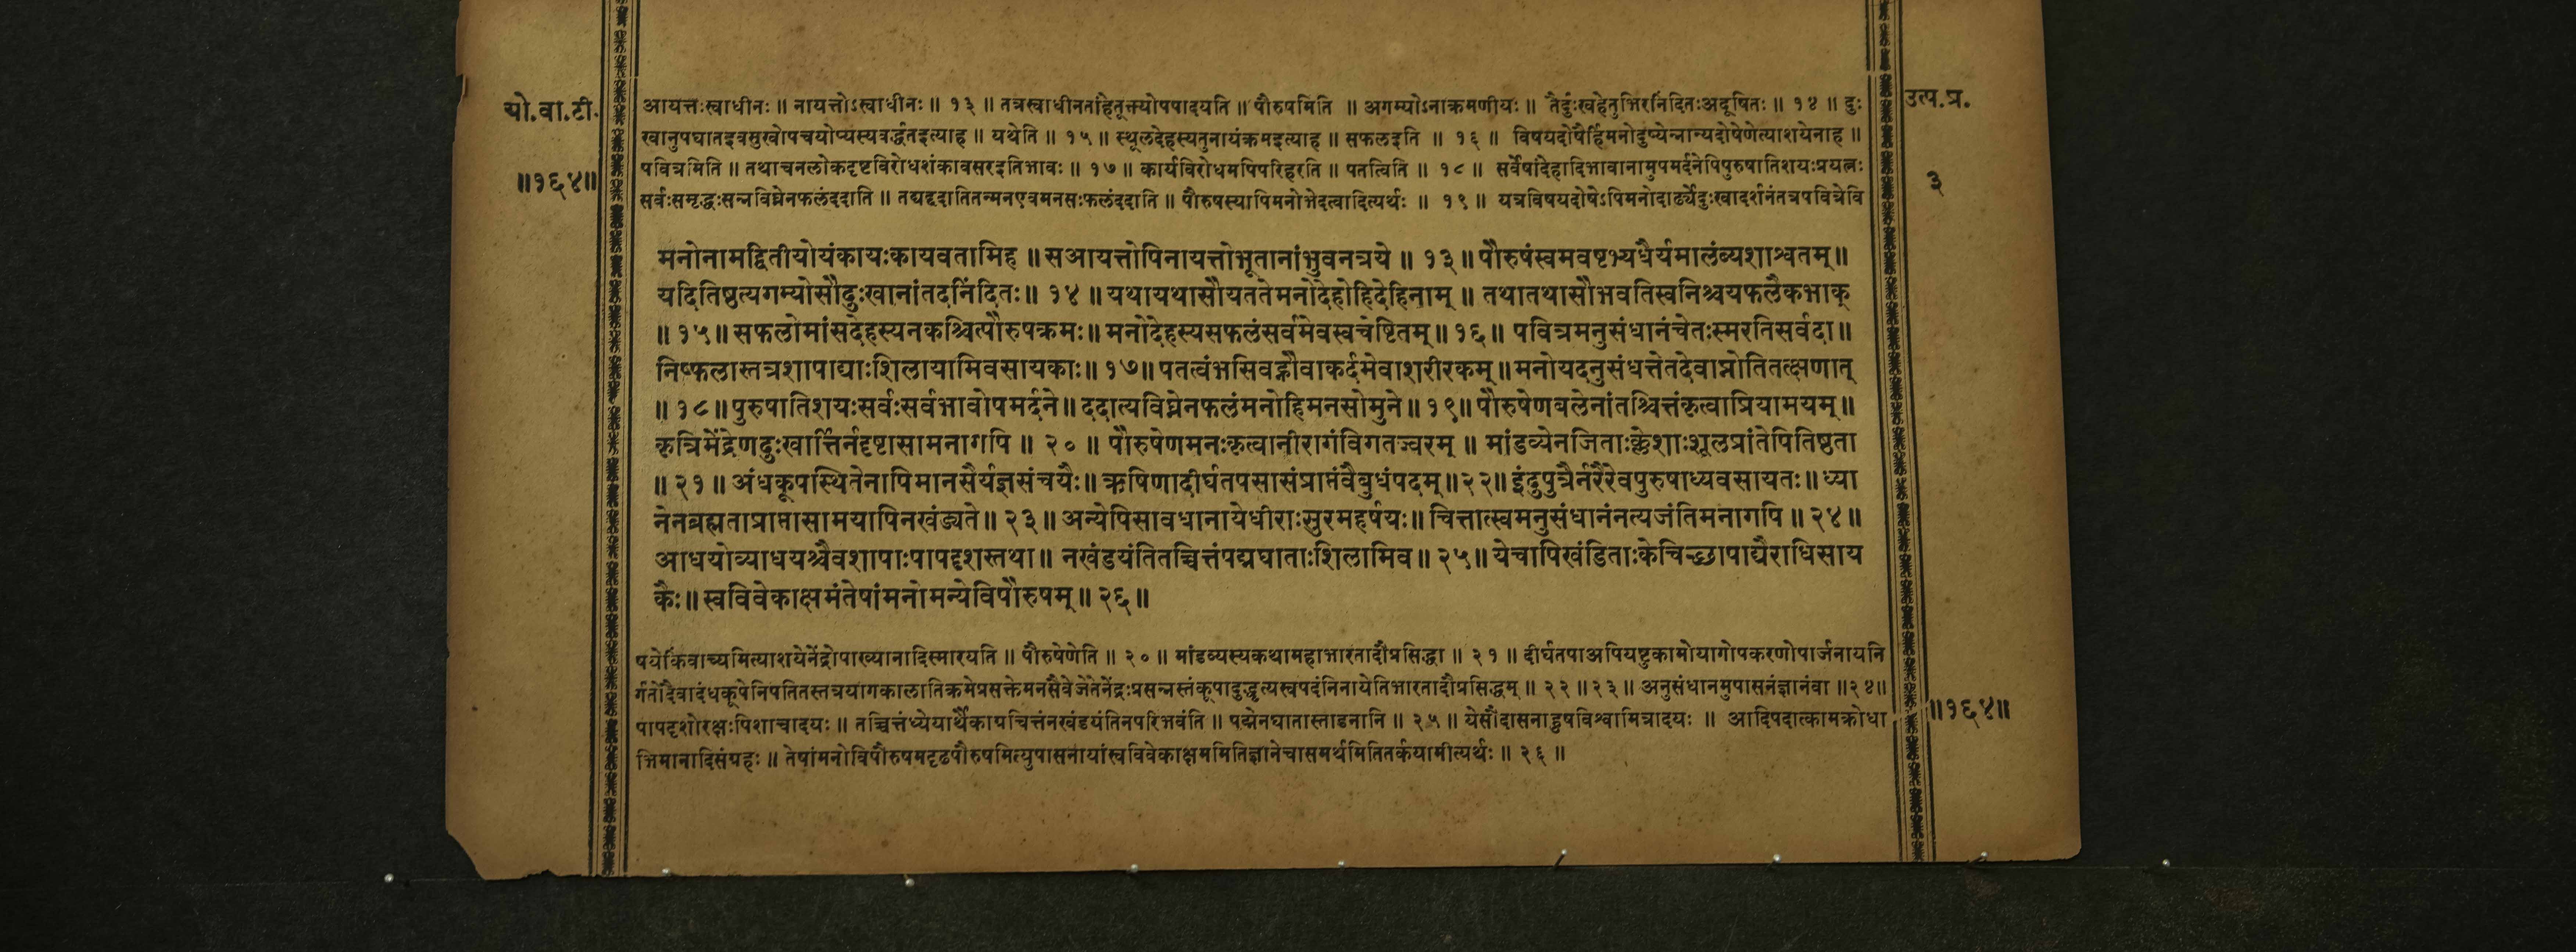 यो.वा.टी.
॥१६४॥
उत्प.प्र.
३
॥१६४॥
आयत्तःस्वाधीनः ॥ नायत्तोऽस्वाधीनः ॥ १३ ॥ तत्रस्वाधीनतांहेतूक्त्योपपादयति ॥ पौरुषमिति ॥ अगम्योऽनाक्रमणीयः ॥ तैर्दुःखहेतुभिरनिंदितःअदूषितः ॥ १४ ॥ दुः
खानुपघातइवसुखोपचयोप्यस्यवर्द्धतइत्याह ॥ यथेति ॥ १५ ॥ स्थूलदेहस्यतुनायंक्रमइत्याह ॥ सफलइति ॥ १६ ॥ विषयदोषैर्हिमनोदुष्येन्नान्यदोषेणेत्याशयेनाह ॥
पवित्रमिति ॥ तथाचनलोकदृष्टविरोधशंकावसरइतिभावः ॥ १७ ॥ कार्यविरोधमपिपरिहरति ॥ पतत्विति ॥ १८ ॥ सर्वेषांदेहादिभावानामुपमर्दनेपिपुरुषातिशयःप्रयत्नः
सर्वःसमृद्धःसन्नविघ्नेनफलंददाति ॥ तद्यद्ददातितन्मनएवमनसःफलंददाति ॥ पौरुषस्यापिमनोभेदत्वादित्यर्थः ॥ १९ ॥ यत्रविषयदोषेऽपिमनोदार्ढ्येदुःखादर्शनंतत्रपवित्रेवि
मनोनामद्वितीयोयंकायःकायवतामिह ॥ सआयत्तोपिनायत्तोभूतानांभुवनत्रये ॥ १३ ॥ पौरुषंस्वमवष्टभ्यधैर्यमालंब्यशाश्वतम् ॥
यदितिष्ठत्यगम्योसौदुःखानांतदनिंदितः ॥ १४ ॥ यथायथासौयततेमनोदेहोहिदेहिनाम् ॥ तथातथासौभवतिस्वनिश्चयफलैकभाक्
॥ १५ ॥ सफलोमांसदेहस्यनकश्चित्पौरुषक्रमः ॥ मनोदेहस्यसफलंसर्वमेवस्वचेष्टितम् ॥ १६ ॥ पवित्रमनुसंधानंचेतःस्मरतिसर्वदा ॥
निष्फलास्तत्रशापाद्याःशिलायामिवसायकाः ॥ १७ ॥ पतत्वंभसिवह्नौवाकर्दमेवाशरीरकम् ॥ मनोयदनुसंधत्तेतदेवाप्नोतितत्क्षणात्
॥ १८ ॥ पुरुषातिशयःसर्वःसर्वभावोपमर्दने ॥ ददात्यविघ्नेनफलंमनोहिमनसोमुने ॥ १९ ॥ पौरुषेणबलेनांतश्चित्तंकृत्वाप्रियामयम् ॥
कृत्रिमेंद्रेणदुःखार्त्तिर्नदृष्टासामनागपि ॥ २० ॥ पौरुषेणमनःकृत्वानीरागंविगतज्वरम् ॥ मांडव्येनजिताःक्लेशाःशूलप्रांतेपितिष्ठता
॥ २१ ॥ अंधकूपस्थितेनापिमानसैर्यज्ञसंचयैः ॥ ऋषिणादीर्घतपसासंप्राप्तंवैबुधंपदम् ॥ २२ ॥ इंदुपुत्रैर्नरैरेवपुरुषाध्यवसायतः ॥ ध्या
नेनब्रह्मताप्राप्तासामयापिनखंड्यते ॥ २३ ॥ अन्येपिसावधानायेधीराःसुरमहर्षयः ॥ चित्तात्स्वमनुसंधानंनत्यजंतिमनागपि ॥ २४ ॥
आधयोव्याधयश्चैवशापाःपापदृशस्तथा ॥ नखंडयंतितच्चित्तंपद्मघाताःशिलामिव ॥ २५ ॥ येचापिखंडिताःकेचिच्छापाद्यैराधिसाय
कैः ॥ स्वविवेकाक्षमंतेषांमनोमन्येविपौरुषम् ॥ २६ ॥
षयेकिंवाच्यमित्याशयेनेंद्रोपाख्यानादिस्मारयति ॥ पौरुषेणेति ॥ २० ॥ मांडव्यस्यकथामहाभारतादौप्रसिद्धा ॥ २१ ॥ दीर्घतपाअपियष्टुकामोयागोपकरणोपार्जनायनि
र्गतोदैवादंधकूपेनिपतितस्तत्रयागकालातिक्रमेप्रसक्तेमनसैवेजेतेनेंद्रःप्रसन्नस्तंकूपादुद्धृत्यस्वपदंनिनायेतिभारतादौप्रसिद्धम् ॥ २२ ॥ २३ ॥ अनुसंधानमुपासनंज्ञानंवा ॥ २४ ॥
पापदृशोरक्षःपिशाचादयः ॥ तच्चित्तंध्येयार्थैकाग्रचित्तंनखंडयंतिनपरिभवंति ॥ पद्मेनघातास्ताडनानि ॥ २५ ॥ येसौदासनाहुषविश्वामित्रादयः ॥ आदिपदात्कामक्रोधा
भिमानादिसंग्रहः ॥ तेषांमनोविपौरुषमदृढपौरुषमित्युपासनायांस्वविवेकाक्षममितिज्ञानेचासमर्थमितितर्कयामीत्यर्थः ॥ २६ ॥